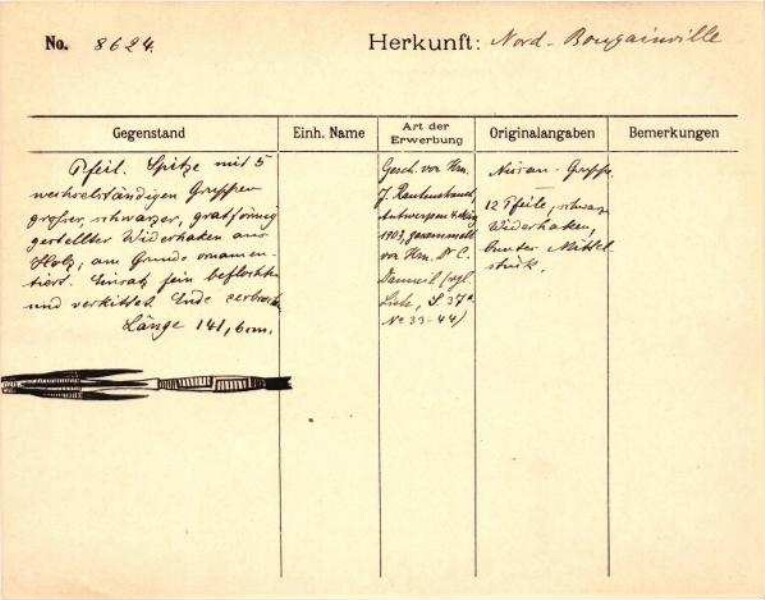 No. 8624.
Herkunft: Nord-Bougainville
Gegenstand
Einh. Name
Art der Erwerbung
Originalangaben
Bemerkungen
Pfeil. Spitze mit 5
wechselständigen Gruppen
großer, schwarzer, gratförmig
gestellter Widerhaken aus
Holz, am Grunde ornamen-
tiert. Einsatz fein beflochten
und verkittet. Ende zerbrochen
Länge 141,6cm.
Gesch. von Hrn.
J. Rautenstrauch,
Antwerpen 4. März
1903, gesammelt
von Hrn. Dr C.
Danneil (vgl.
Liste, S 37a
No 33-44)
Nissan-Gruppe.
12 Pfeile, schwarze
Widerhaken,
bunter Mittel
stück.